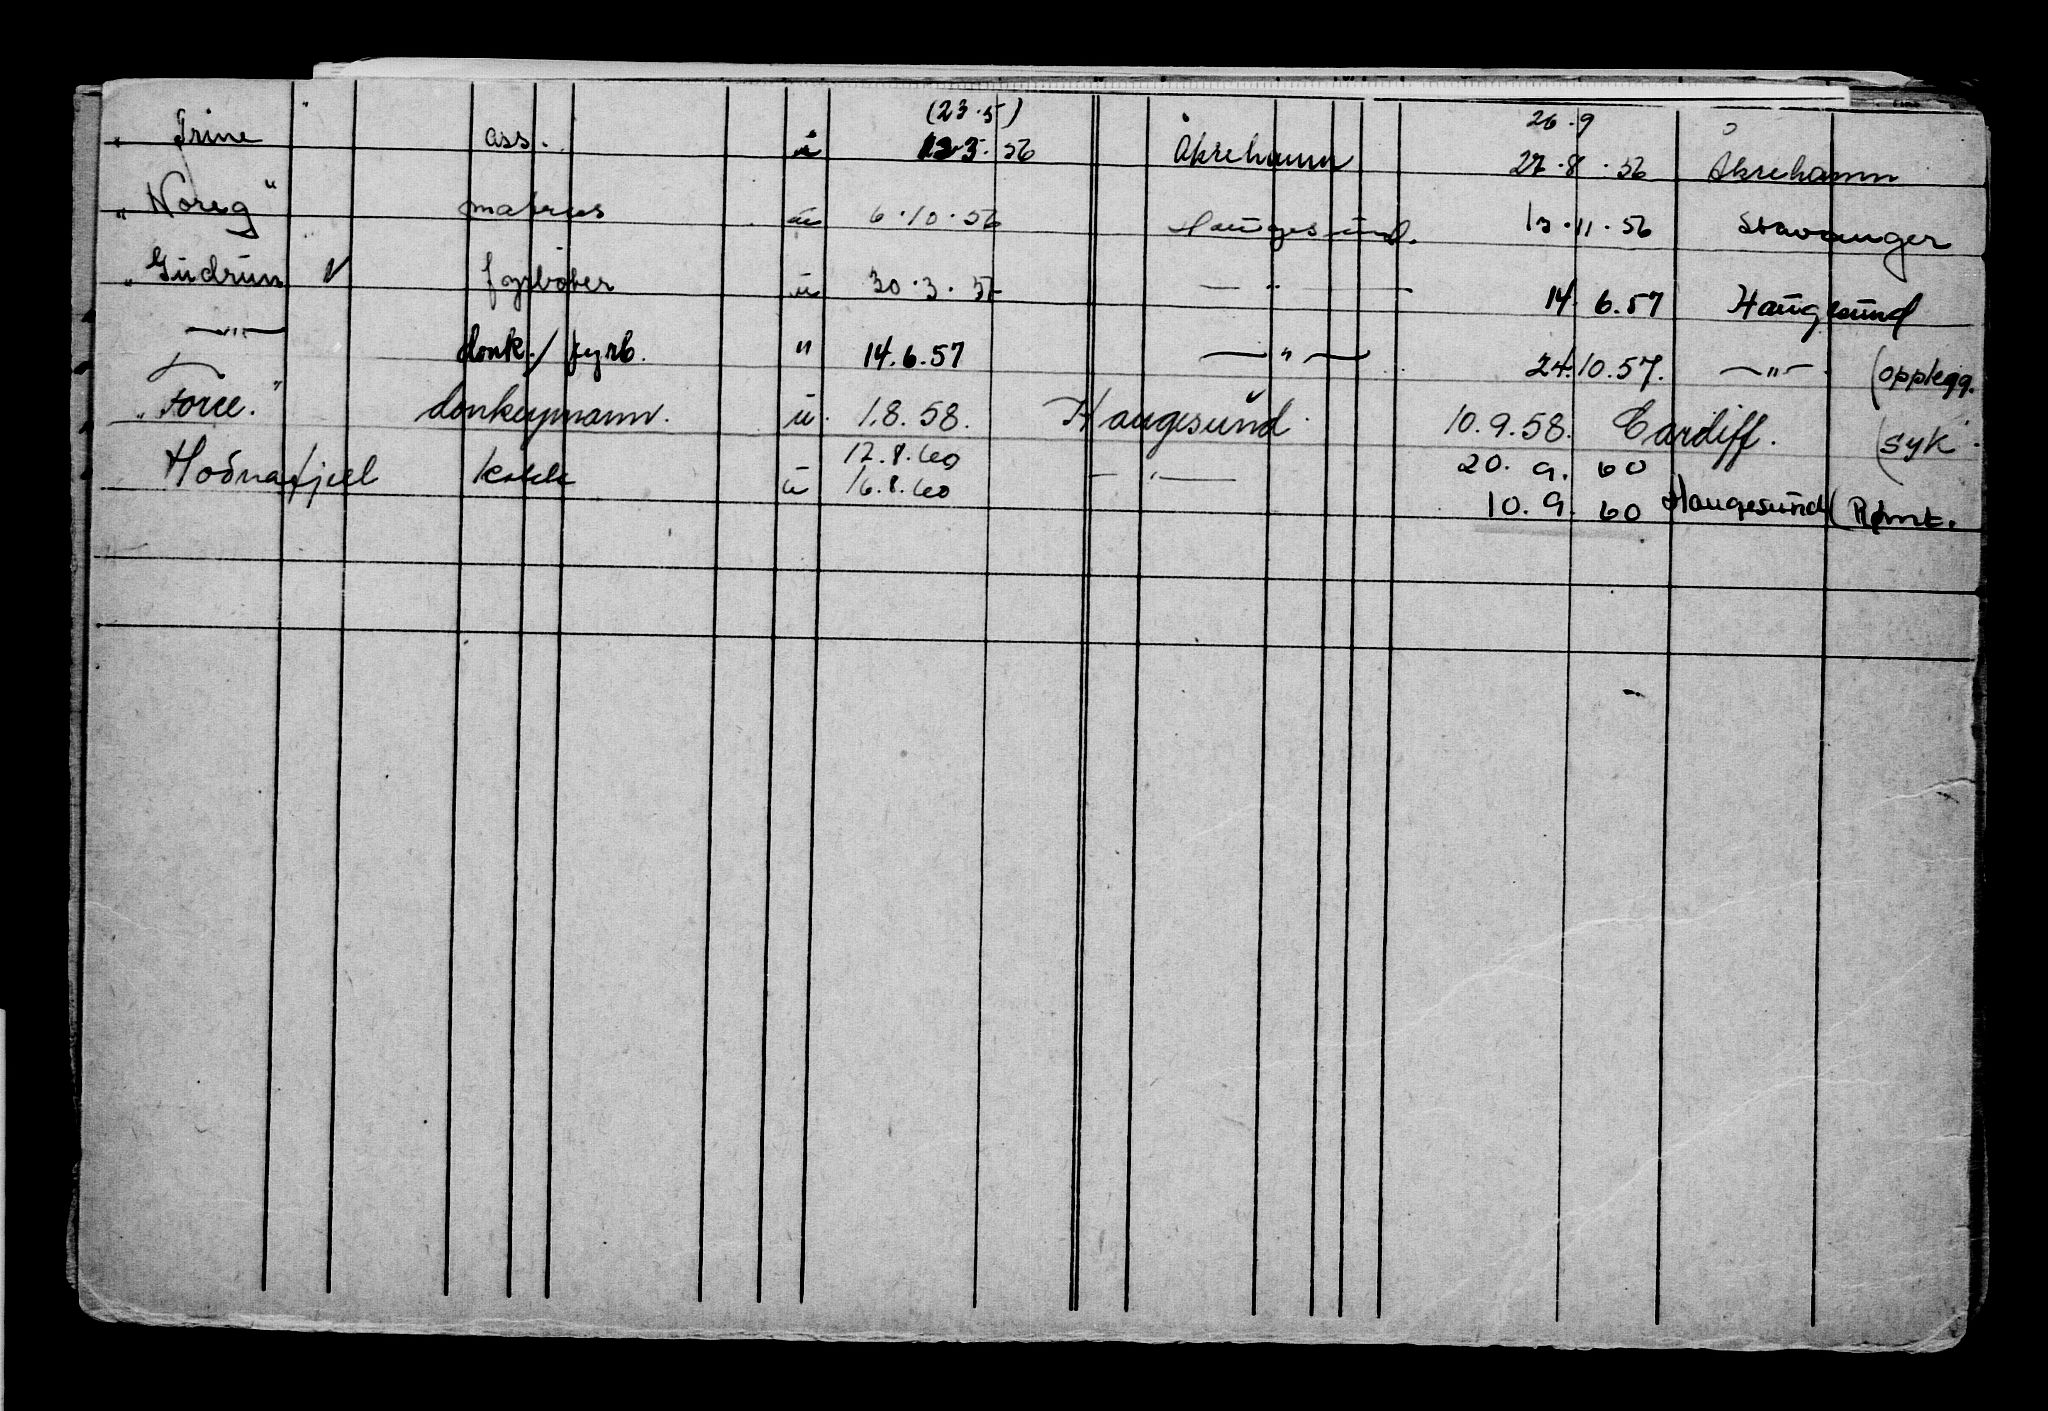 (23.5) 26.9
" Trine ass. u 3.56 Åkrehamn 27.8.56 Åkrehamn
"Noreg" matros u 6.10.56 Haugesund. 13.11.56 Stavanger
"Gudrun V fyrbøter u 30.3.57 — " — 14.6.57 Haugesund
—"— donk./fyrb. " 14.6.57 — " — 24.10.57. —"— (opplegg.
"Force." donkeymann. u. 1.8.58. Haugesund. 10.9.58. Cardiff. (syk.
12.8.60 20.9.60
Hodnafjell kokk u 16.8.60 — " —
10.9.60 Haugesund (Rømt.